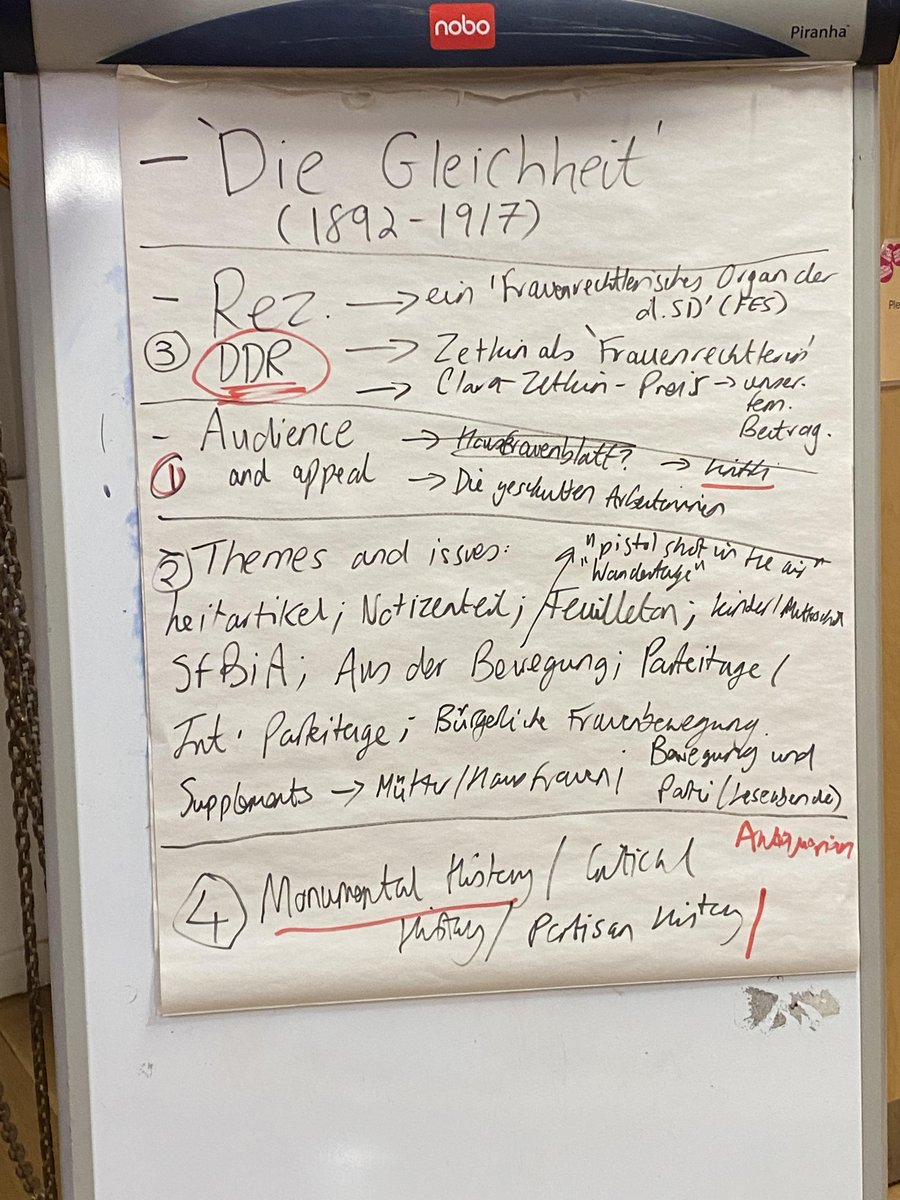 nobo
Piranha
- 'Die Gleichheit'
(1892-1917)
- Rez. → ein 'Frauenrechtlerisches Organ der
d. SD' (FES)
③ DDR → Zetkin als 'Frauenrechtlerin'
→ Clara Zetkin-Preis → unser.
fem.
Beitrag.
- Audience → Hausfrauenblatt? →
① and appeal → Die geschulten Arbeiterinnen
② Themes and issues: "pistol shot in the air"
"Wandertage"
Leitartikel; Notizenteil; Feuilleton; Kinder/Mutterschaft
SfBiA; Aus der Bewegung; Parteitage/
Int. Parteitage; Bürgerliche Frauenbewegung.
Supplements → Mütter/Hausfrauen; Bewegung und
Partei (Leseabende)
Antiquarian
④ Monumental History / Critical
History / Partisan History /
Ple